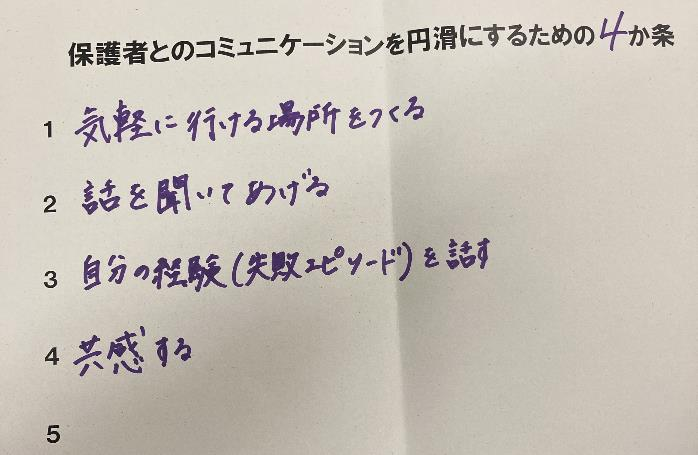 保護者とのコミュニケーションを円滑にするための4か条
1 気軽に行ける場所をつくる
2 話を聞いてあげる
3 自分の経験(失敗エピソード)を話す
4 共感する
5